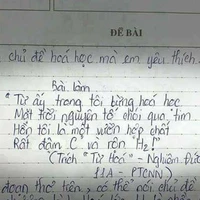 ĐỀ BÀI
chủ đề hoá học mà em yêu thích.
Bài làm
"Từ ấy trong tôi bừng hoá học
Mặt trời nguyên tố chói qua tim
Hồn tôi là một vườn hợp chất
Rất đậm C và rộn "H₂!"
(Trích "Từ Hoá" - Nghiêm Đức
11A - PTCNN)
đoạn thơ trên, có thể nói chủ đề